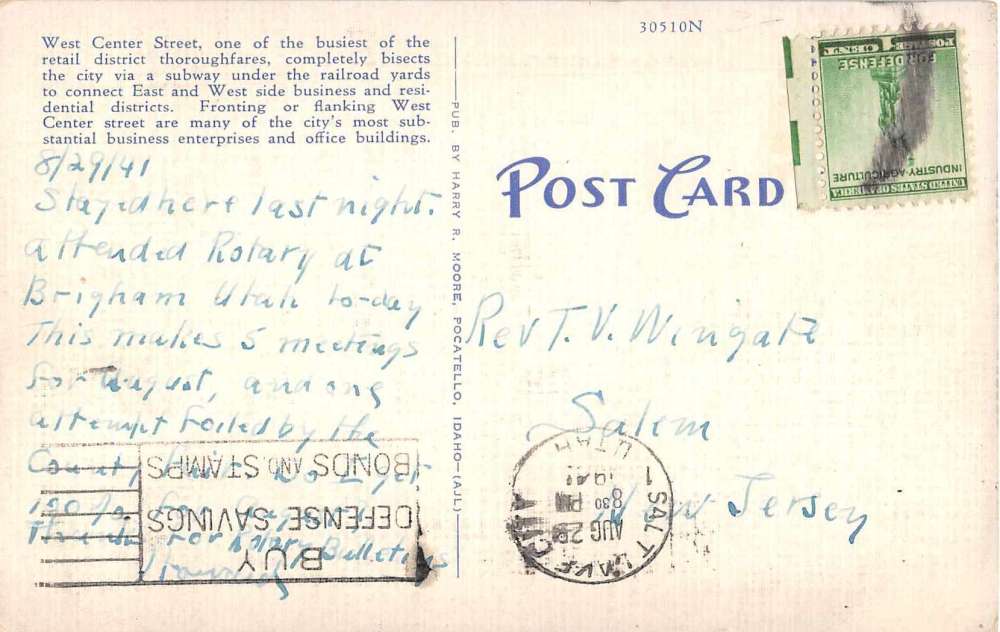 West Center Street, one of the busiest of the
retail district thoroughfares, completely bisects
the city via a subway under the railroad yards
to connect East and West side business and resi-
dential districts. Fronting or flanking West
Center street are many of the city's most sub-
stantial business enterprises and office buildings.
8/29/41
Stayed here last night.
attended Rotary at
Brigham Utah to-day
This makes 5 meetings
for August, and one
attempt foiled by the
County
100% for August
for Rotary Bulletins
PUB. BY HARRY R. MOORE, POCATELLO, IDAHO—(AJL)
30510N
POST CARD
Rev T. V. Wingate
Salem
New Jersey
UNITED STATES OF AMERICA
INDUSTRY-AGRICULTURE
FOR DEFENSE
POSTAGE
BUY
DEFENSE SAVINGS
BONDS AND STAMPS
SALT LAKE CITY
AUG 29
8 30 PM
UTAH